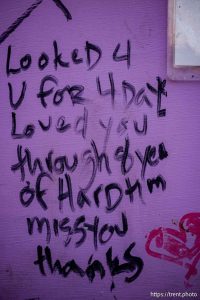 LOOKED 4
U FOR 4 DAY
Loved you
through 8 yea
OF HARDTIM
miss you
thanks
https://trent.photo